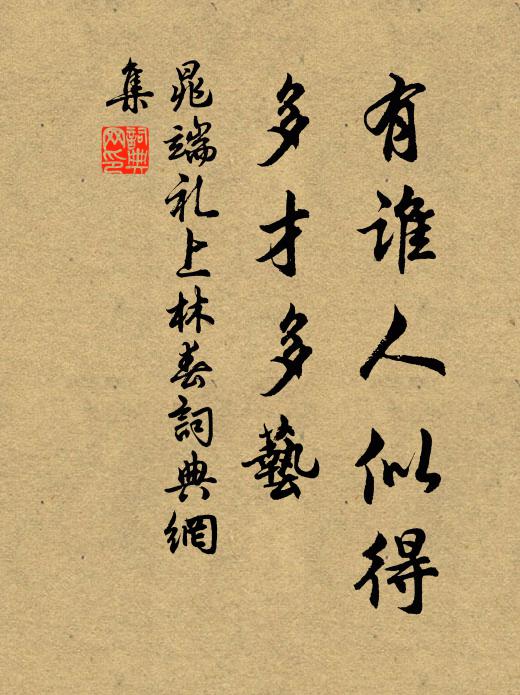 有谁人似得
多才多藝
晁端礼上林春詞典網
集
詞典
网印